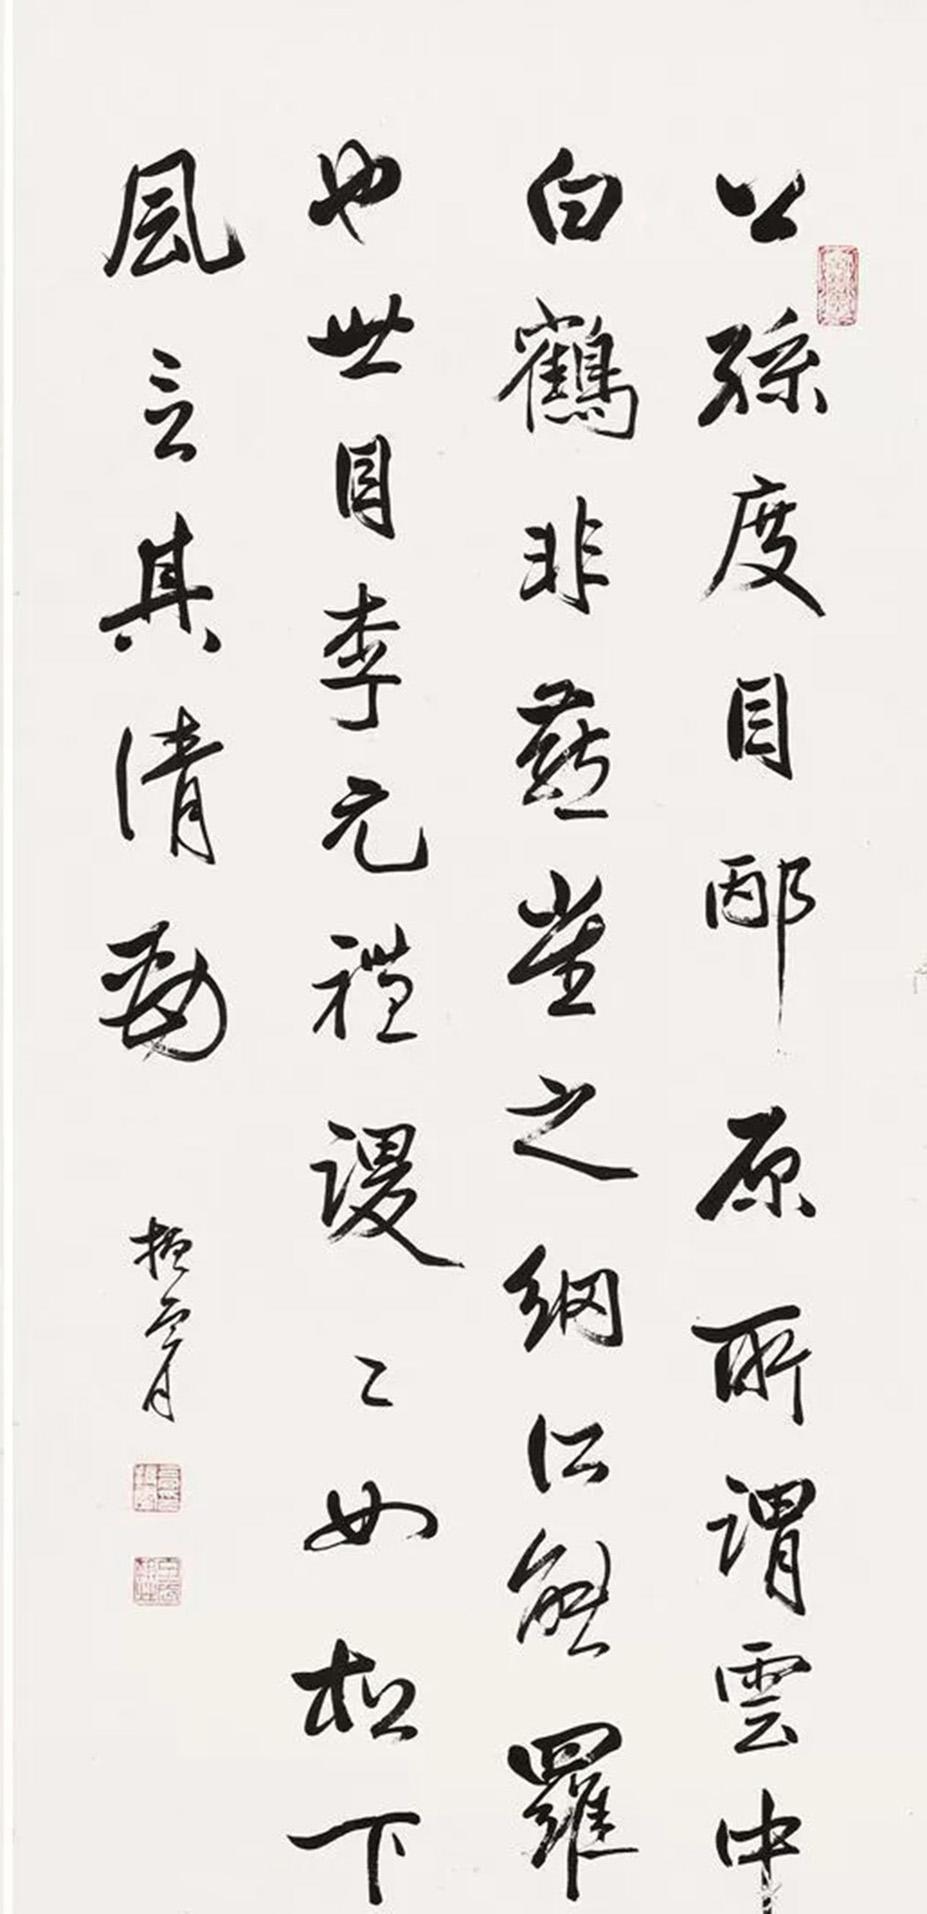 公孫度目邴原所謂雲中
白鶴非燕雀之網所能羅
也世目李元禮謖〻如松下
風言其清勁